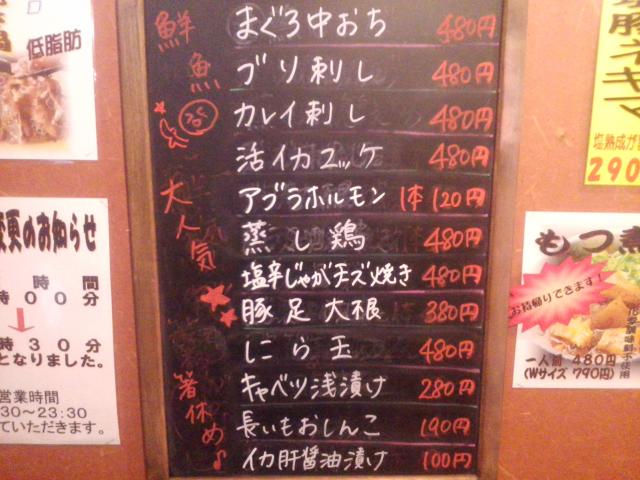 鮮魚
まぐろ中おち 480円
ブリ刺し 480円
カレイ刺し 480円
活イカユッケ 480円
大人気
アブラホルモン 1本 120円
蒸し鶏 480円
塩辛じゃがチーズ焼き 480円
豚足大根 380円
にら玉 480円
箸休め♪
キャベツ浅漬け 280円
長いもおしんこ 190円
イカ肝醤油漬け 100円
低脂肪
変更のお知らせ
時間
時00分
↓
時30分
となりました。
営業時間
:30～23:30
ていただきます。
豚ネギマ
塩熟成が
290
もつ煮
お持帰りできます!
化学調味料不使用
一人前 480円
(Wサイズ 790円)